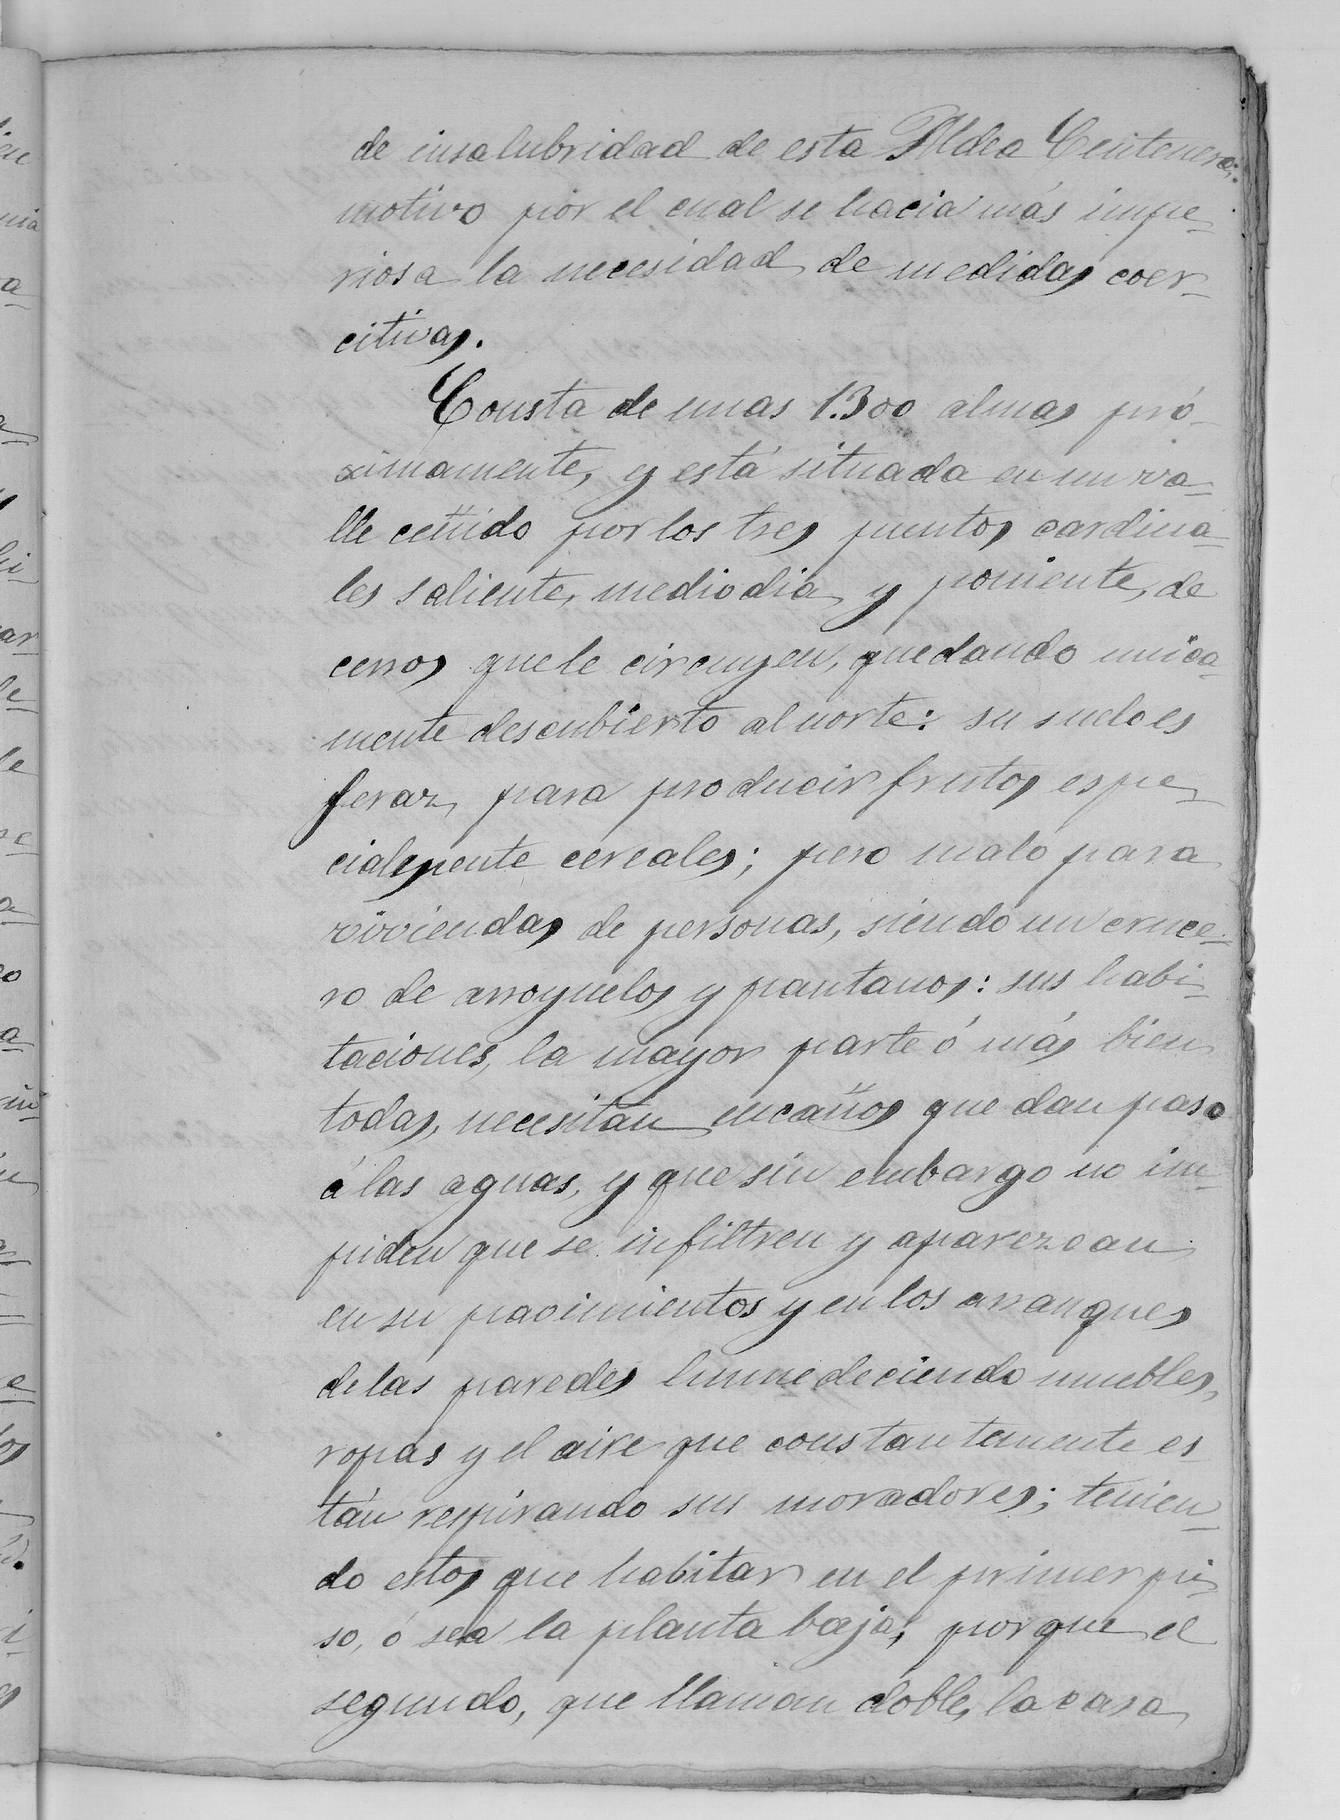 de insalubridad de esta Aldea Centenera;
motivo por el cual se hacia más impe-
riosa la necesidad de medidas coer-
citivas.
Consta de unas 1300 almas pró-
ximamente, y está situada en un va-
lle ceñido por los tres puntos cardina-
les saliente, mediodia y poniente, de
cerros que le circuyen, quedando unica-
mente descubierto al norte: su suelo es
feraz para producir frutos espe-
cialmente cereales; pero malo para
viviendas de personas, siendo un cruce-
ro de arroyuelos y pantanos: sus habi-
taciones, la mayor parte ó más bien
todas, necesitan encaños que dan paso
á las aguas, y que sin embargo no im-
piden que se infiltren y aparezcan
en su pavimientos y en los arranques
de las paredes humedeciendo muebles,
ropas y el aire que constantemente es-
tán respirando sus moradores; tenien-
do estos que habitar en el primer pi-
so, ó sea la planta baja, porque el
segundo, que llaman doble, la casa